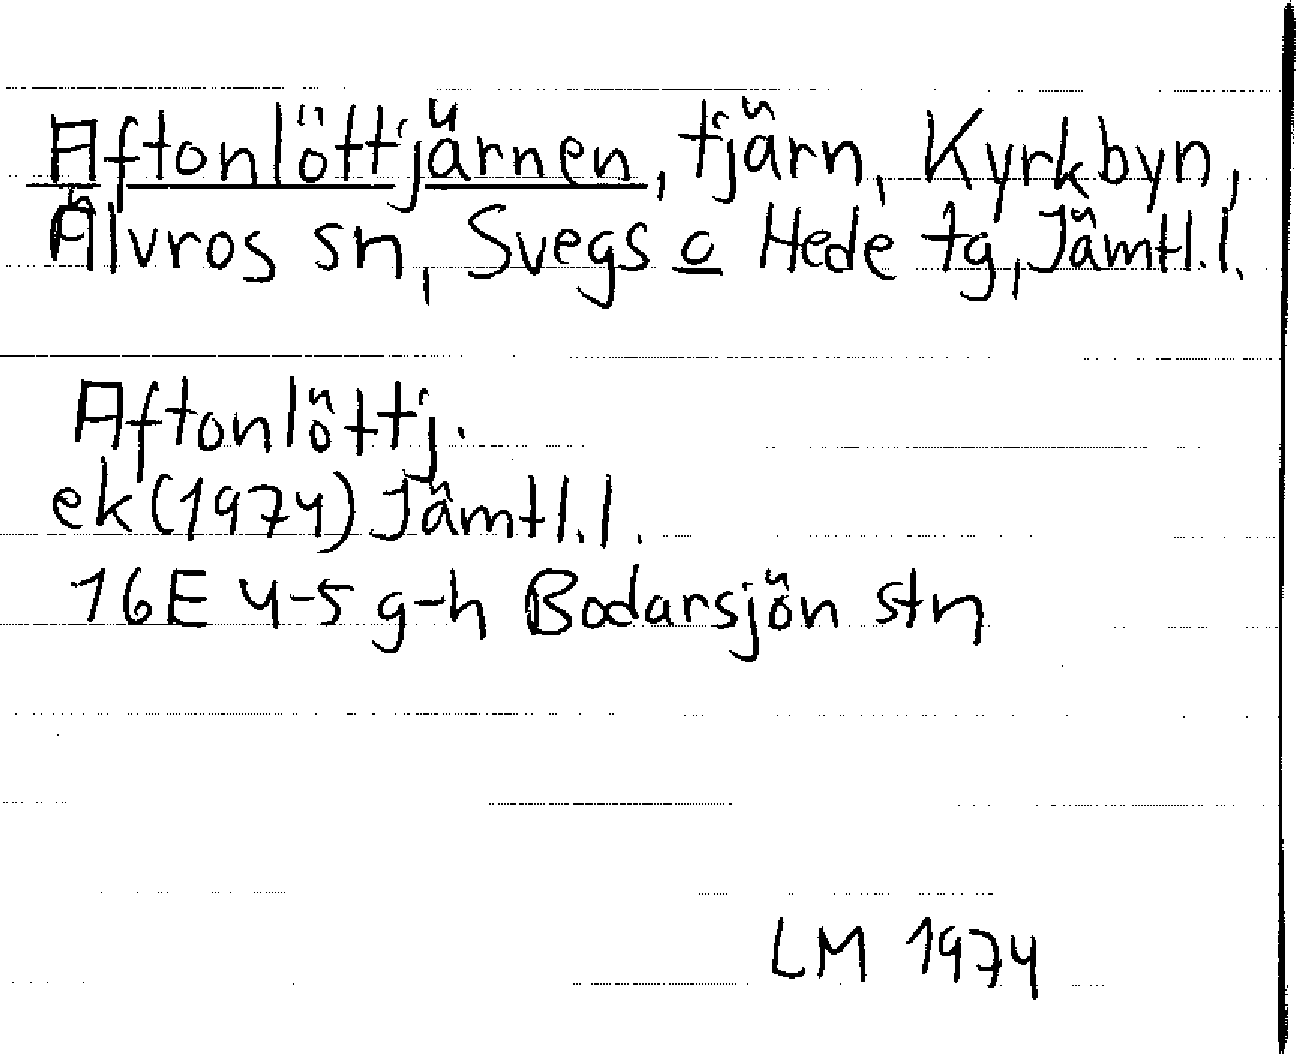 Aftonlöttjärnen, tjärn, Kyrkbyn,
Älvros sn, Svegs o Hede tg, Jämtl.l.
Aftonlöttj.
ek (1974) Jämtl.l.
16E 4-5 g-h Bodarsjön stn
LM 1974